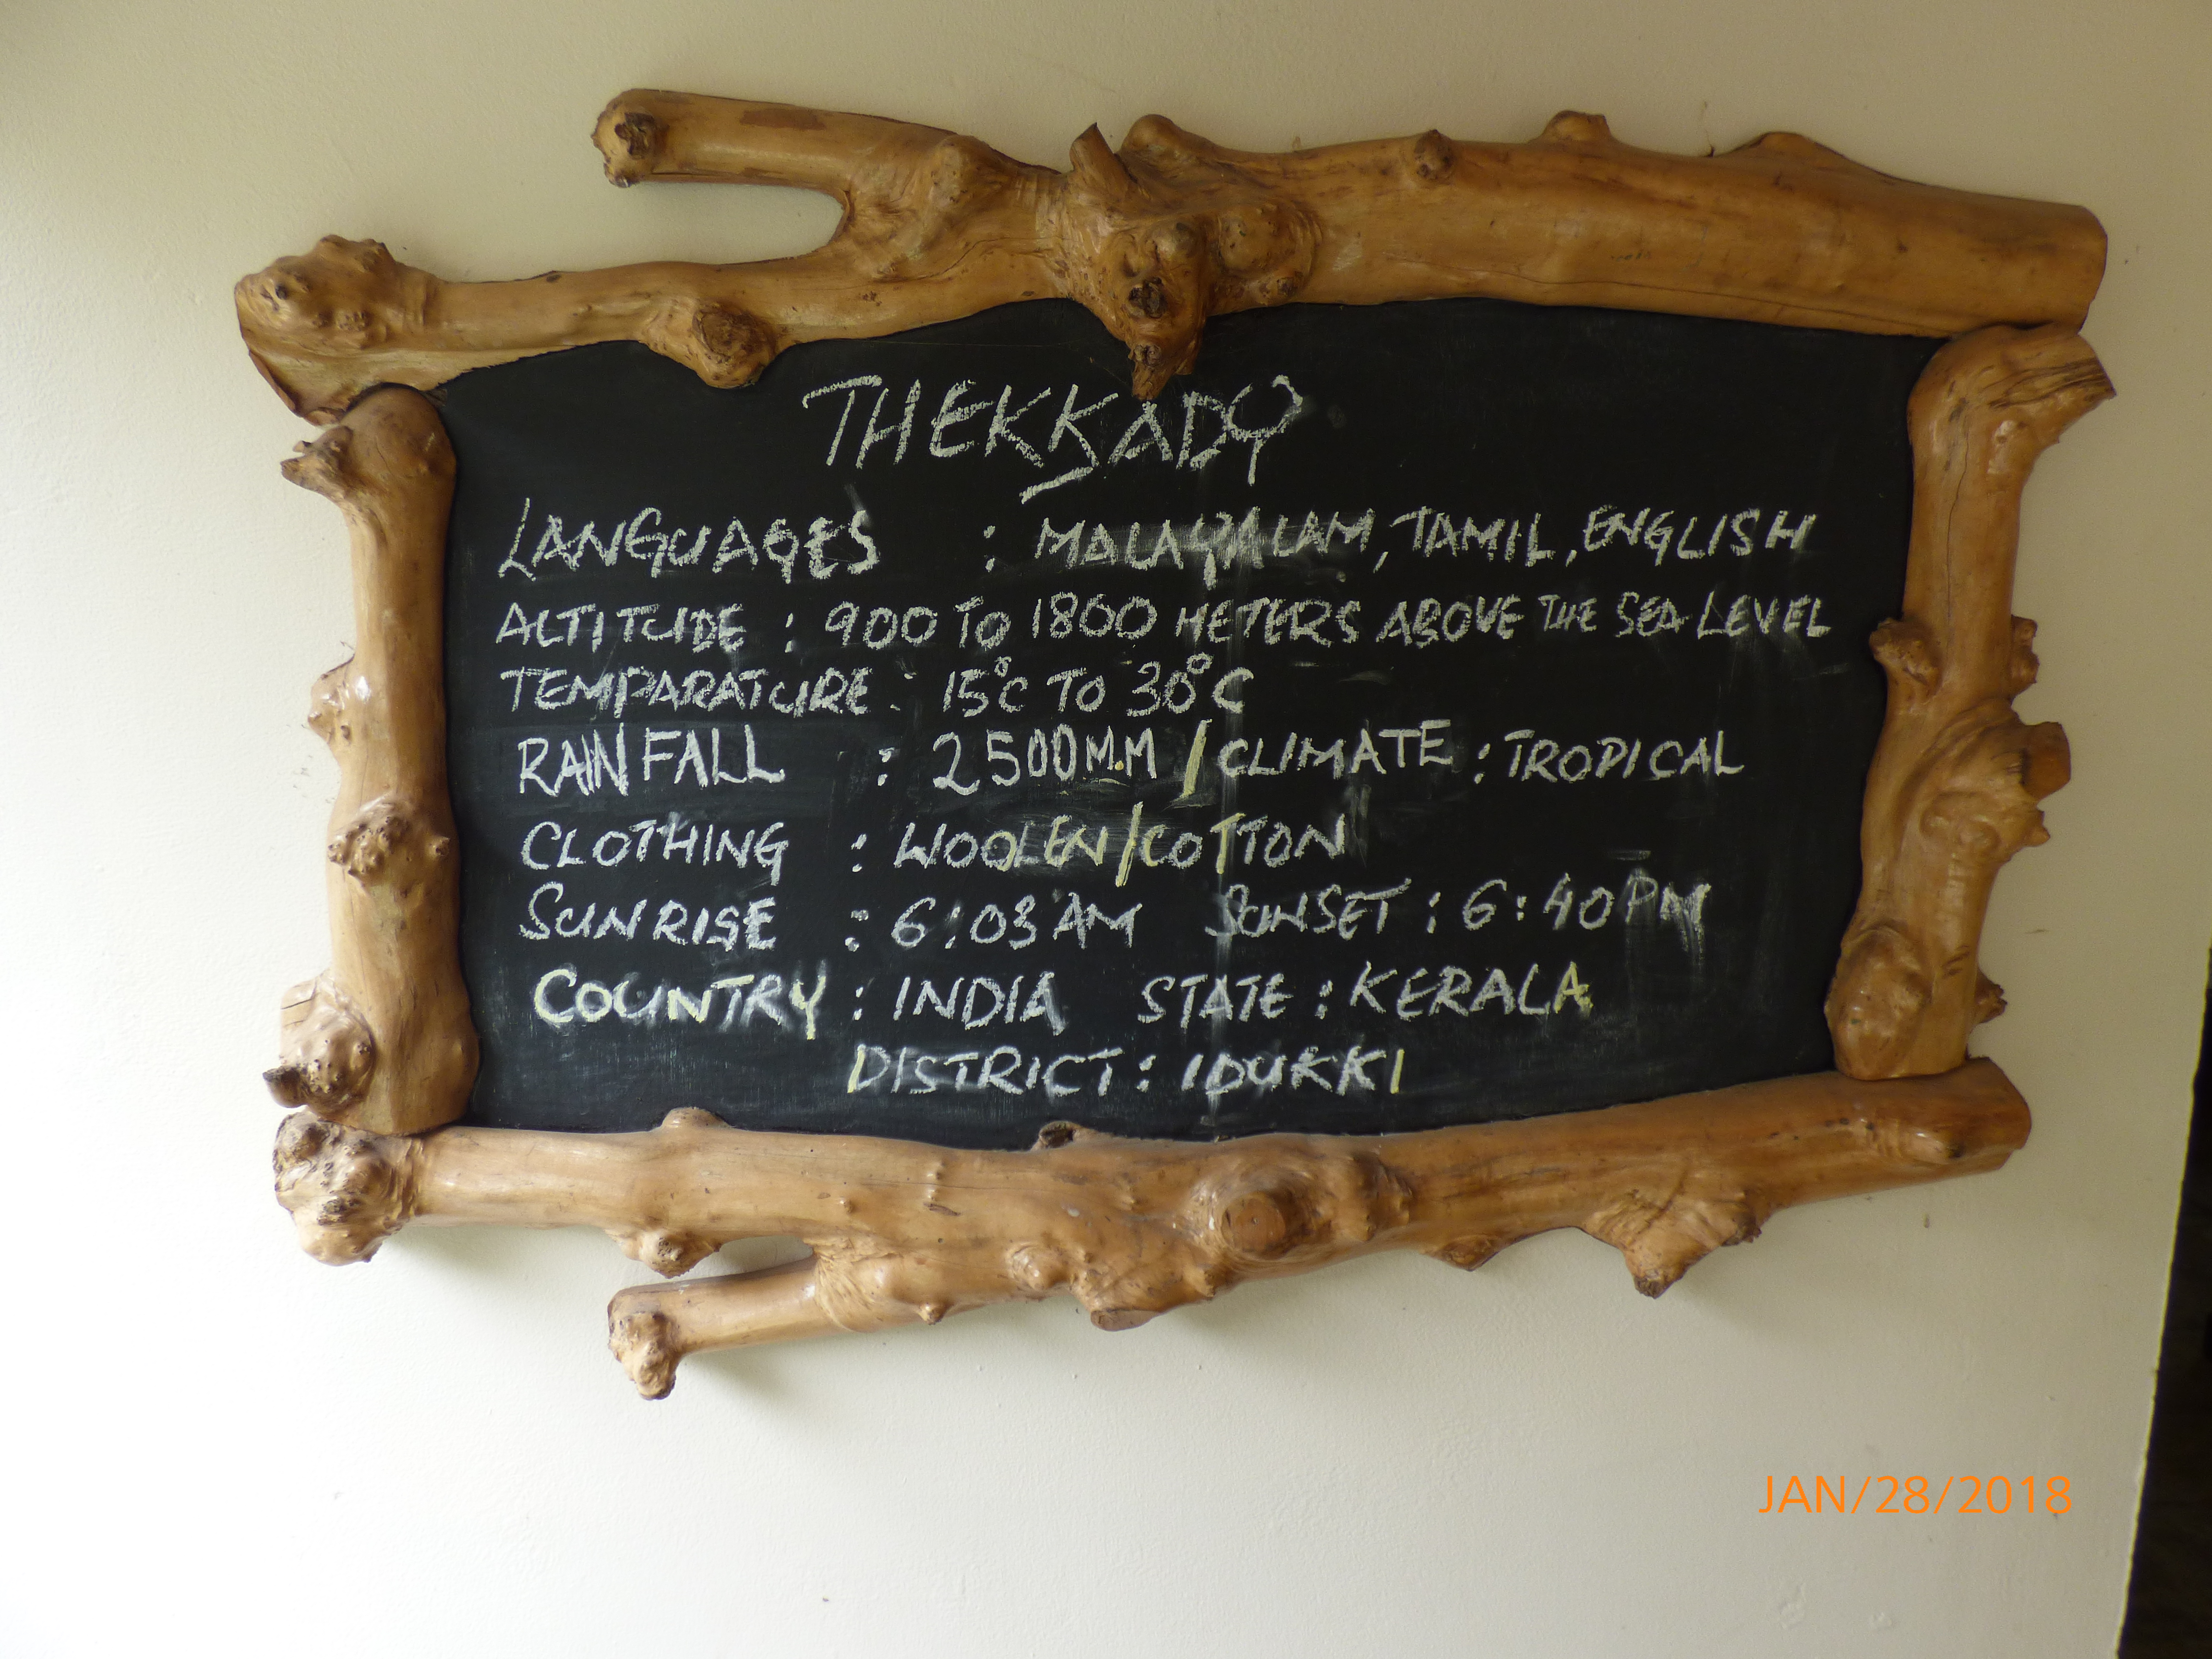 THEKKADY
LANGUAGES : MALAYALAM, TAMIL, ENGLISH
ALTITUDE : 900 TO 1800 METERS ABOVE THE SEA LEVEL
TEMPARATURE : 15°C TO 30°C
RAINFALL : 2500M.M / CLIMATE : TROPICAL
CLOTHING : WOOLEN/COTTON
SUNRISE : 6:03 AM SUNSET : 6:40 PM
COUNTRY : INDIA STATE : KERALA
DISTRICT : IDUKKI
JAN/28/2018